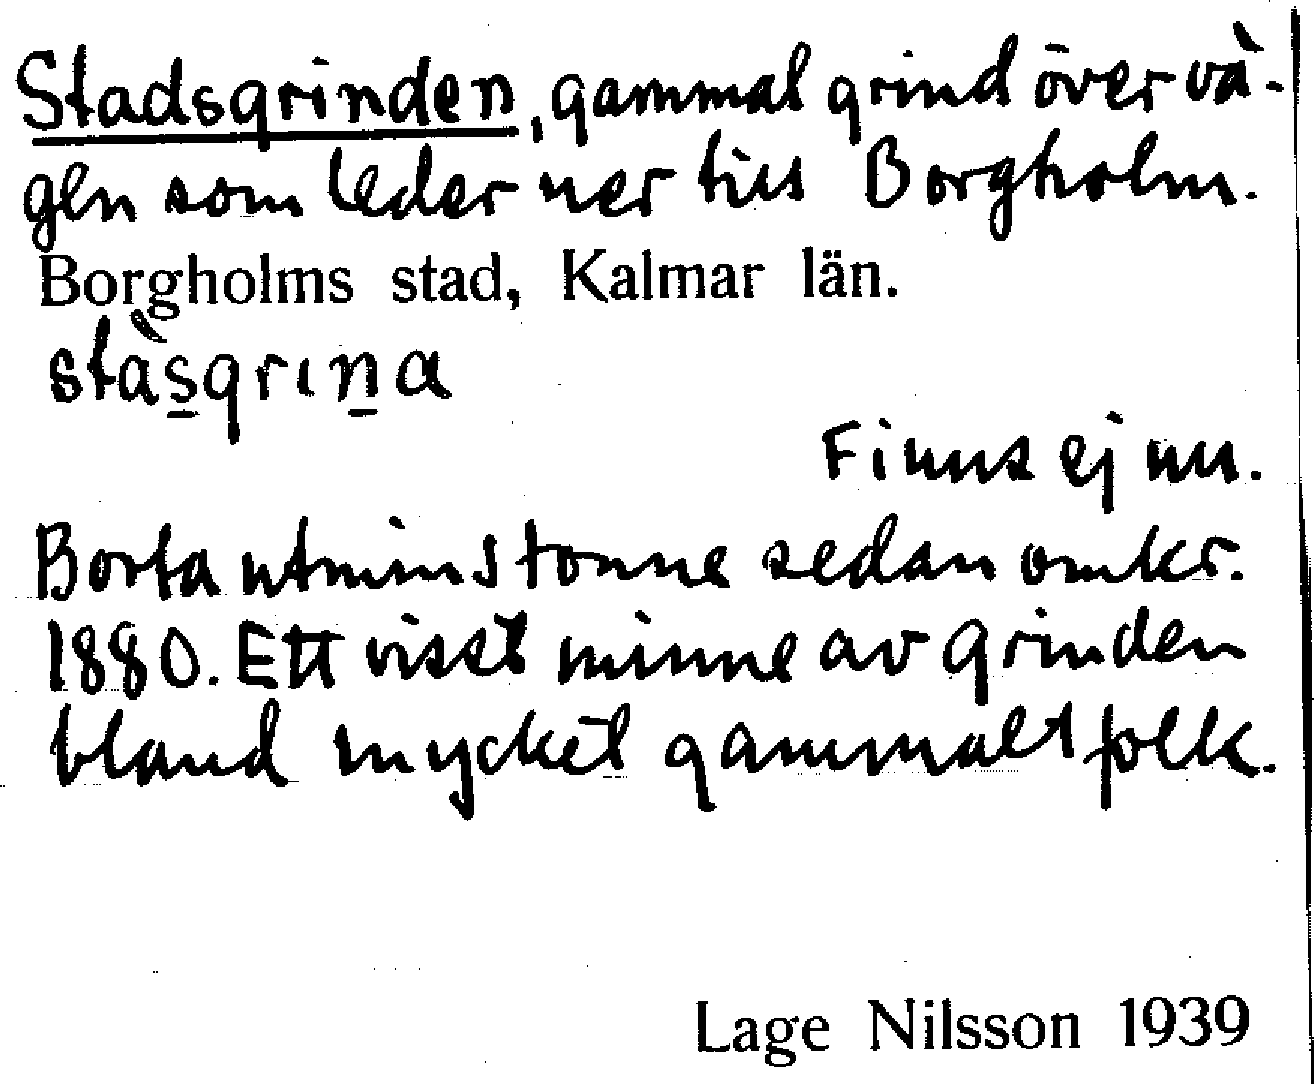 Stadsgrinden, gammal grind över vä-
gen som leder ner till Borgholm.
Borgholms stad, Kalmar län.
stàs̲grın̲a
Finns ej nu.
Borta utminstonne sedan omkr.
1880. Ett visst minne av grinden
bland mycket gammalt folk.
Lage Nilsson 1939